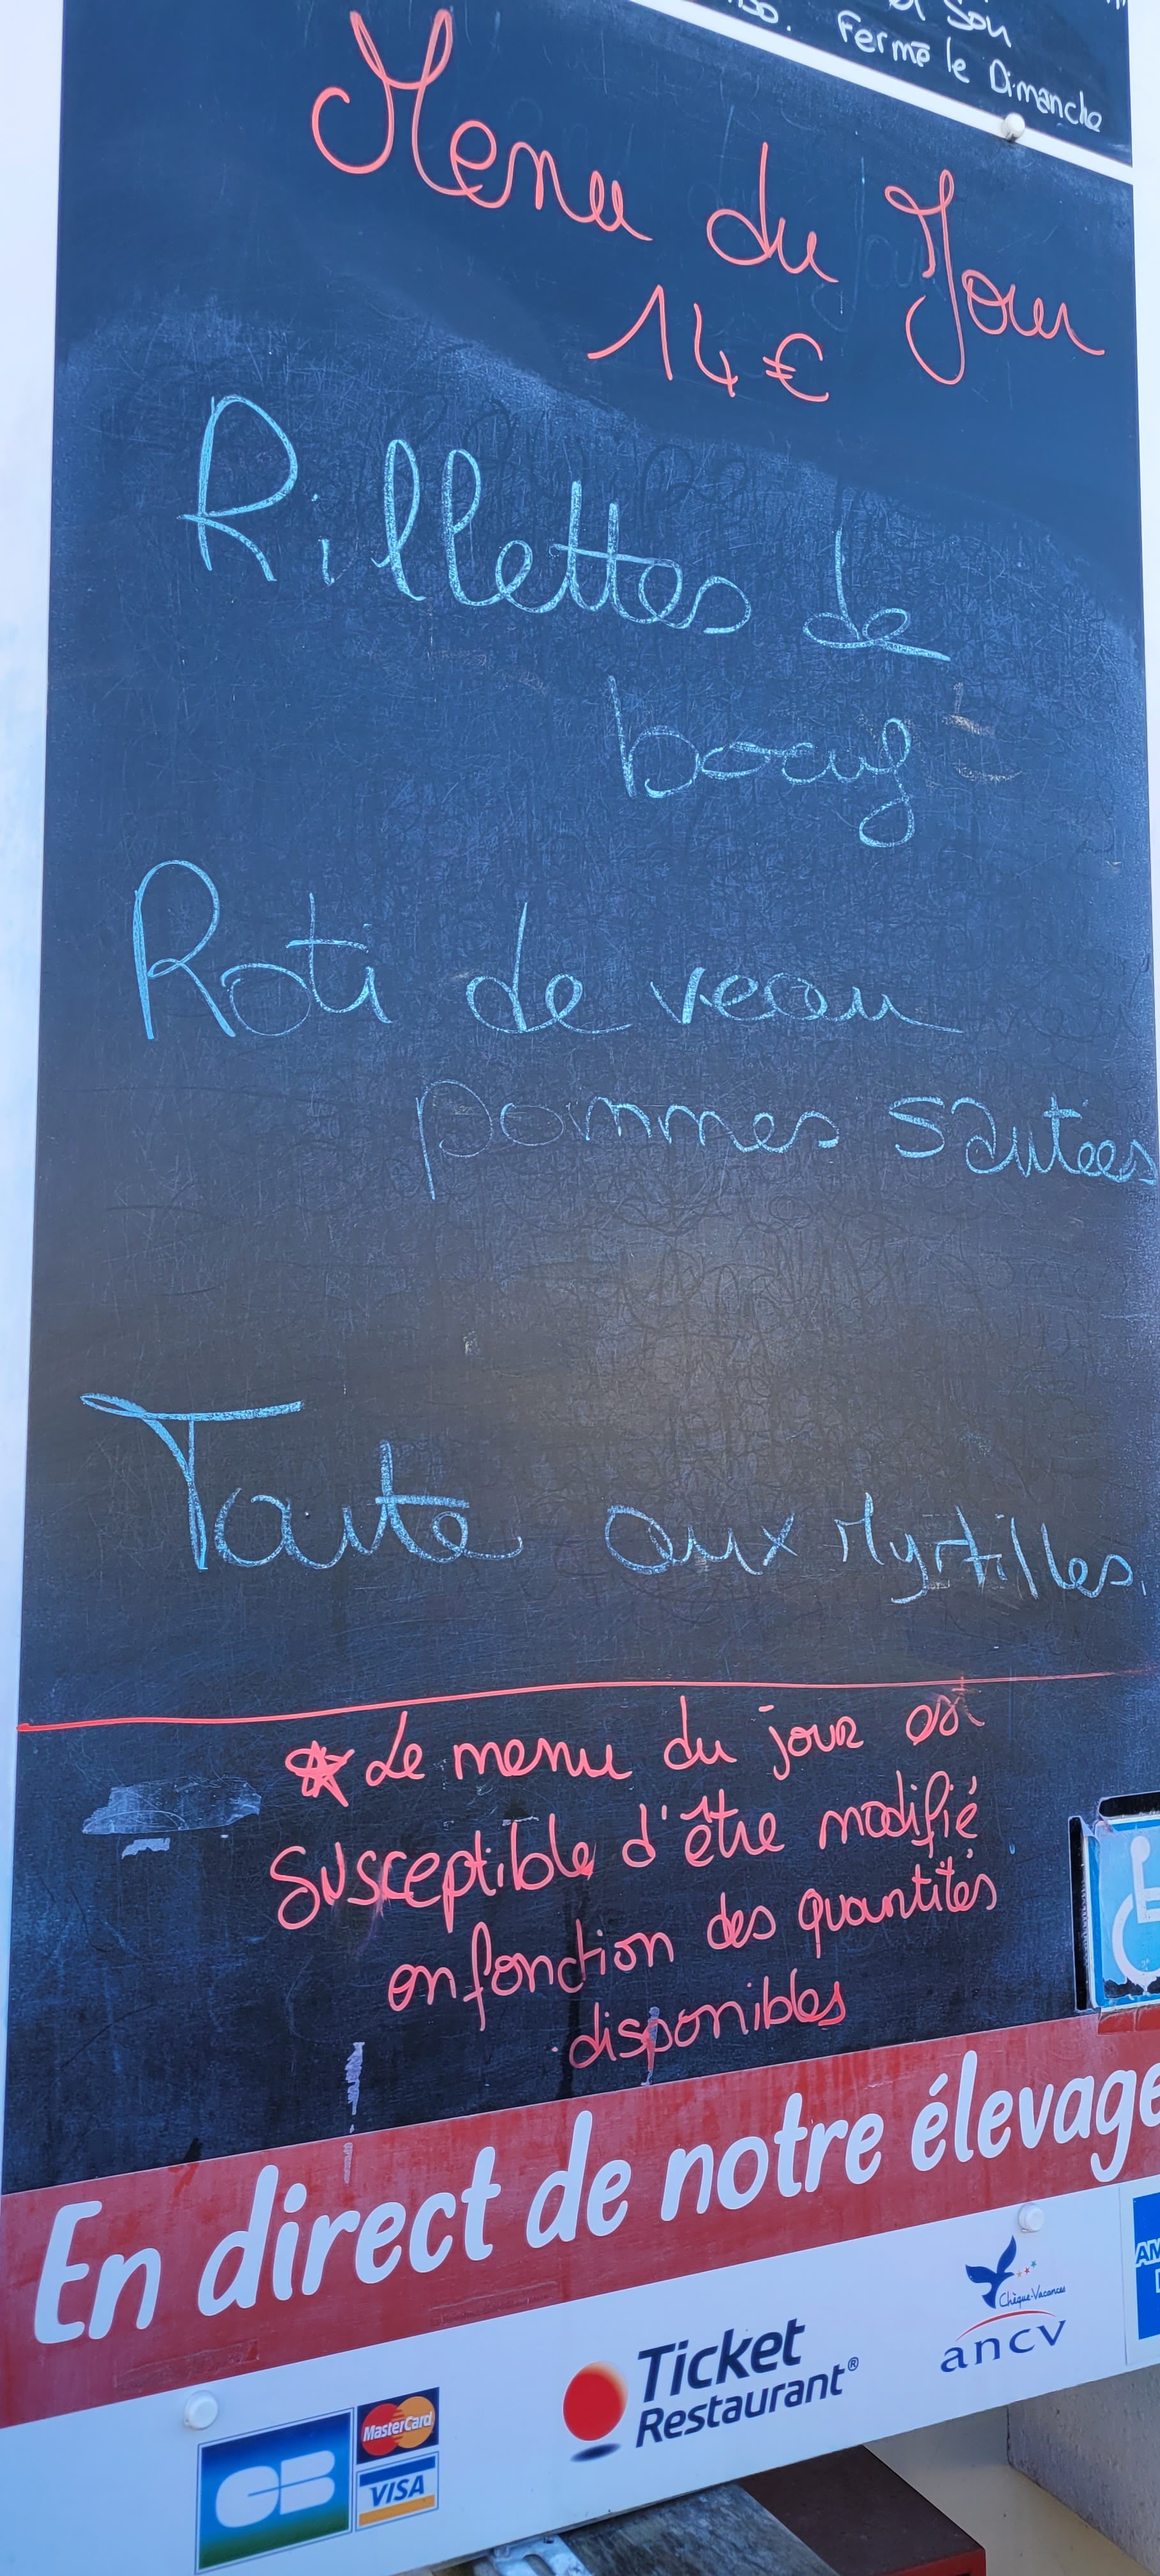 et Son
Fermé le Dimanche
Menu du Jour
14€
Rillettes de
boeuf
Roti de veau
pommes sautees
Tarte aux Myrtilles.
Le menu du jour est
Susceptible d'être modifié
en fonction des quantités
disponibles
En direct de notre élevage
CB
MasterCard
VISA
Ticket
Restaurant®
Chèque-Vacances
ancv